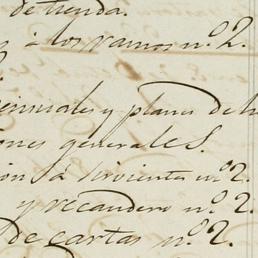 de tienda.
á los ramos nº. 2.
y planes de
generales.
sirvientes nº. 2.
y recaudero nº. 2.
de cartas nº. 2.